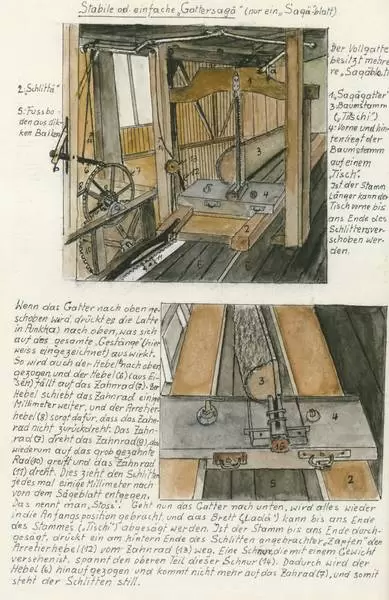 Stabile od. einfache „Gattersagä" (nur ein „Sagä-blatt)
Der Vollgatter
besitzt mehre
re „Sagäblät
2.„Schlittä"
5.Fussbo-
den aus dik-
ken Balken
1.„Sagägatter"
3.Baumstamm
(„Titschi")
4.Vorne und hin-
ten liegt der
Baumstamm
auf einem
„Tisch".
Ist der Stamm
länger kann der
Tisch vorne bis
ans Ende des
Schlittens ver-
schoben wer-
den.
Wenn das Gatter nach oben ge-
schoben wird, drückt es die Latte
in Punkt (a) nach oben, was sich
auf das gesamte „Gestänge (hier
weiss eingezeichnet) auswirkt.
So wird auch der Hebel nach oben
gezogen und der Hebel (6) (aus Ei-
sen) fällt auf das Zahnrad (7). Der
Hebel schiebt das Zahnrad einige
Millimeter weiter, und der Arretier-
hebel (8) sorgt dafür, dass das Zahn-
rad nicht zurückdreht. Das Zahn-
rad (7) dreht das Zahnrad (9), das
wiederum auf das grob gezahnte
Rad (10) greift und das Zahnrad
(11) dreht. Dies zieht den Schlitten
jedes mal einige Millimeter nach
vorn dem Sägeblatt entgegen.
Das nennt man „Stoss". Geht nun das Gatter nach unten, wird alles wieder
in die Anfangsposition gebracht, und das Brett („Ladä") kann bis ans Ende
des Stammes („Titschi") abgesägt werden. Ist der Stamm bis ans Ende durch-
gesägt, drückt ein am hintern Ende des Schlitten angebrachter „Zapfen" den
Arretierhebel (12) vom Zahnrad (13) weg. Eine Schnur, die mit einem Gewicht
versehen ist, spannt den oberen Teil dieser Schnur (14). Dadurch wird der
Hebel (6) hinauf gezogen und kommt nicht mehr auf das Zahrad (7), und somit
steht der Schlitten still.